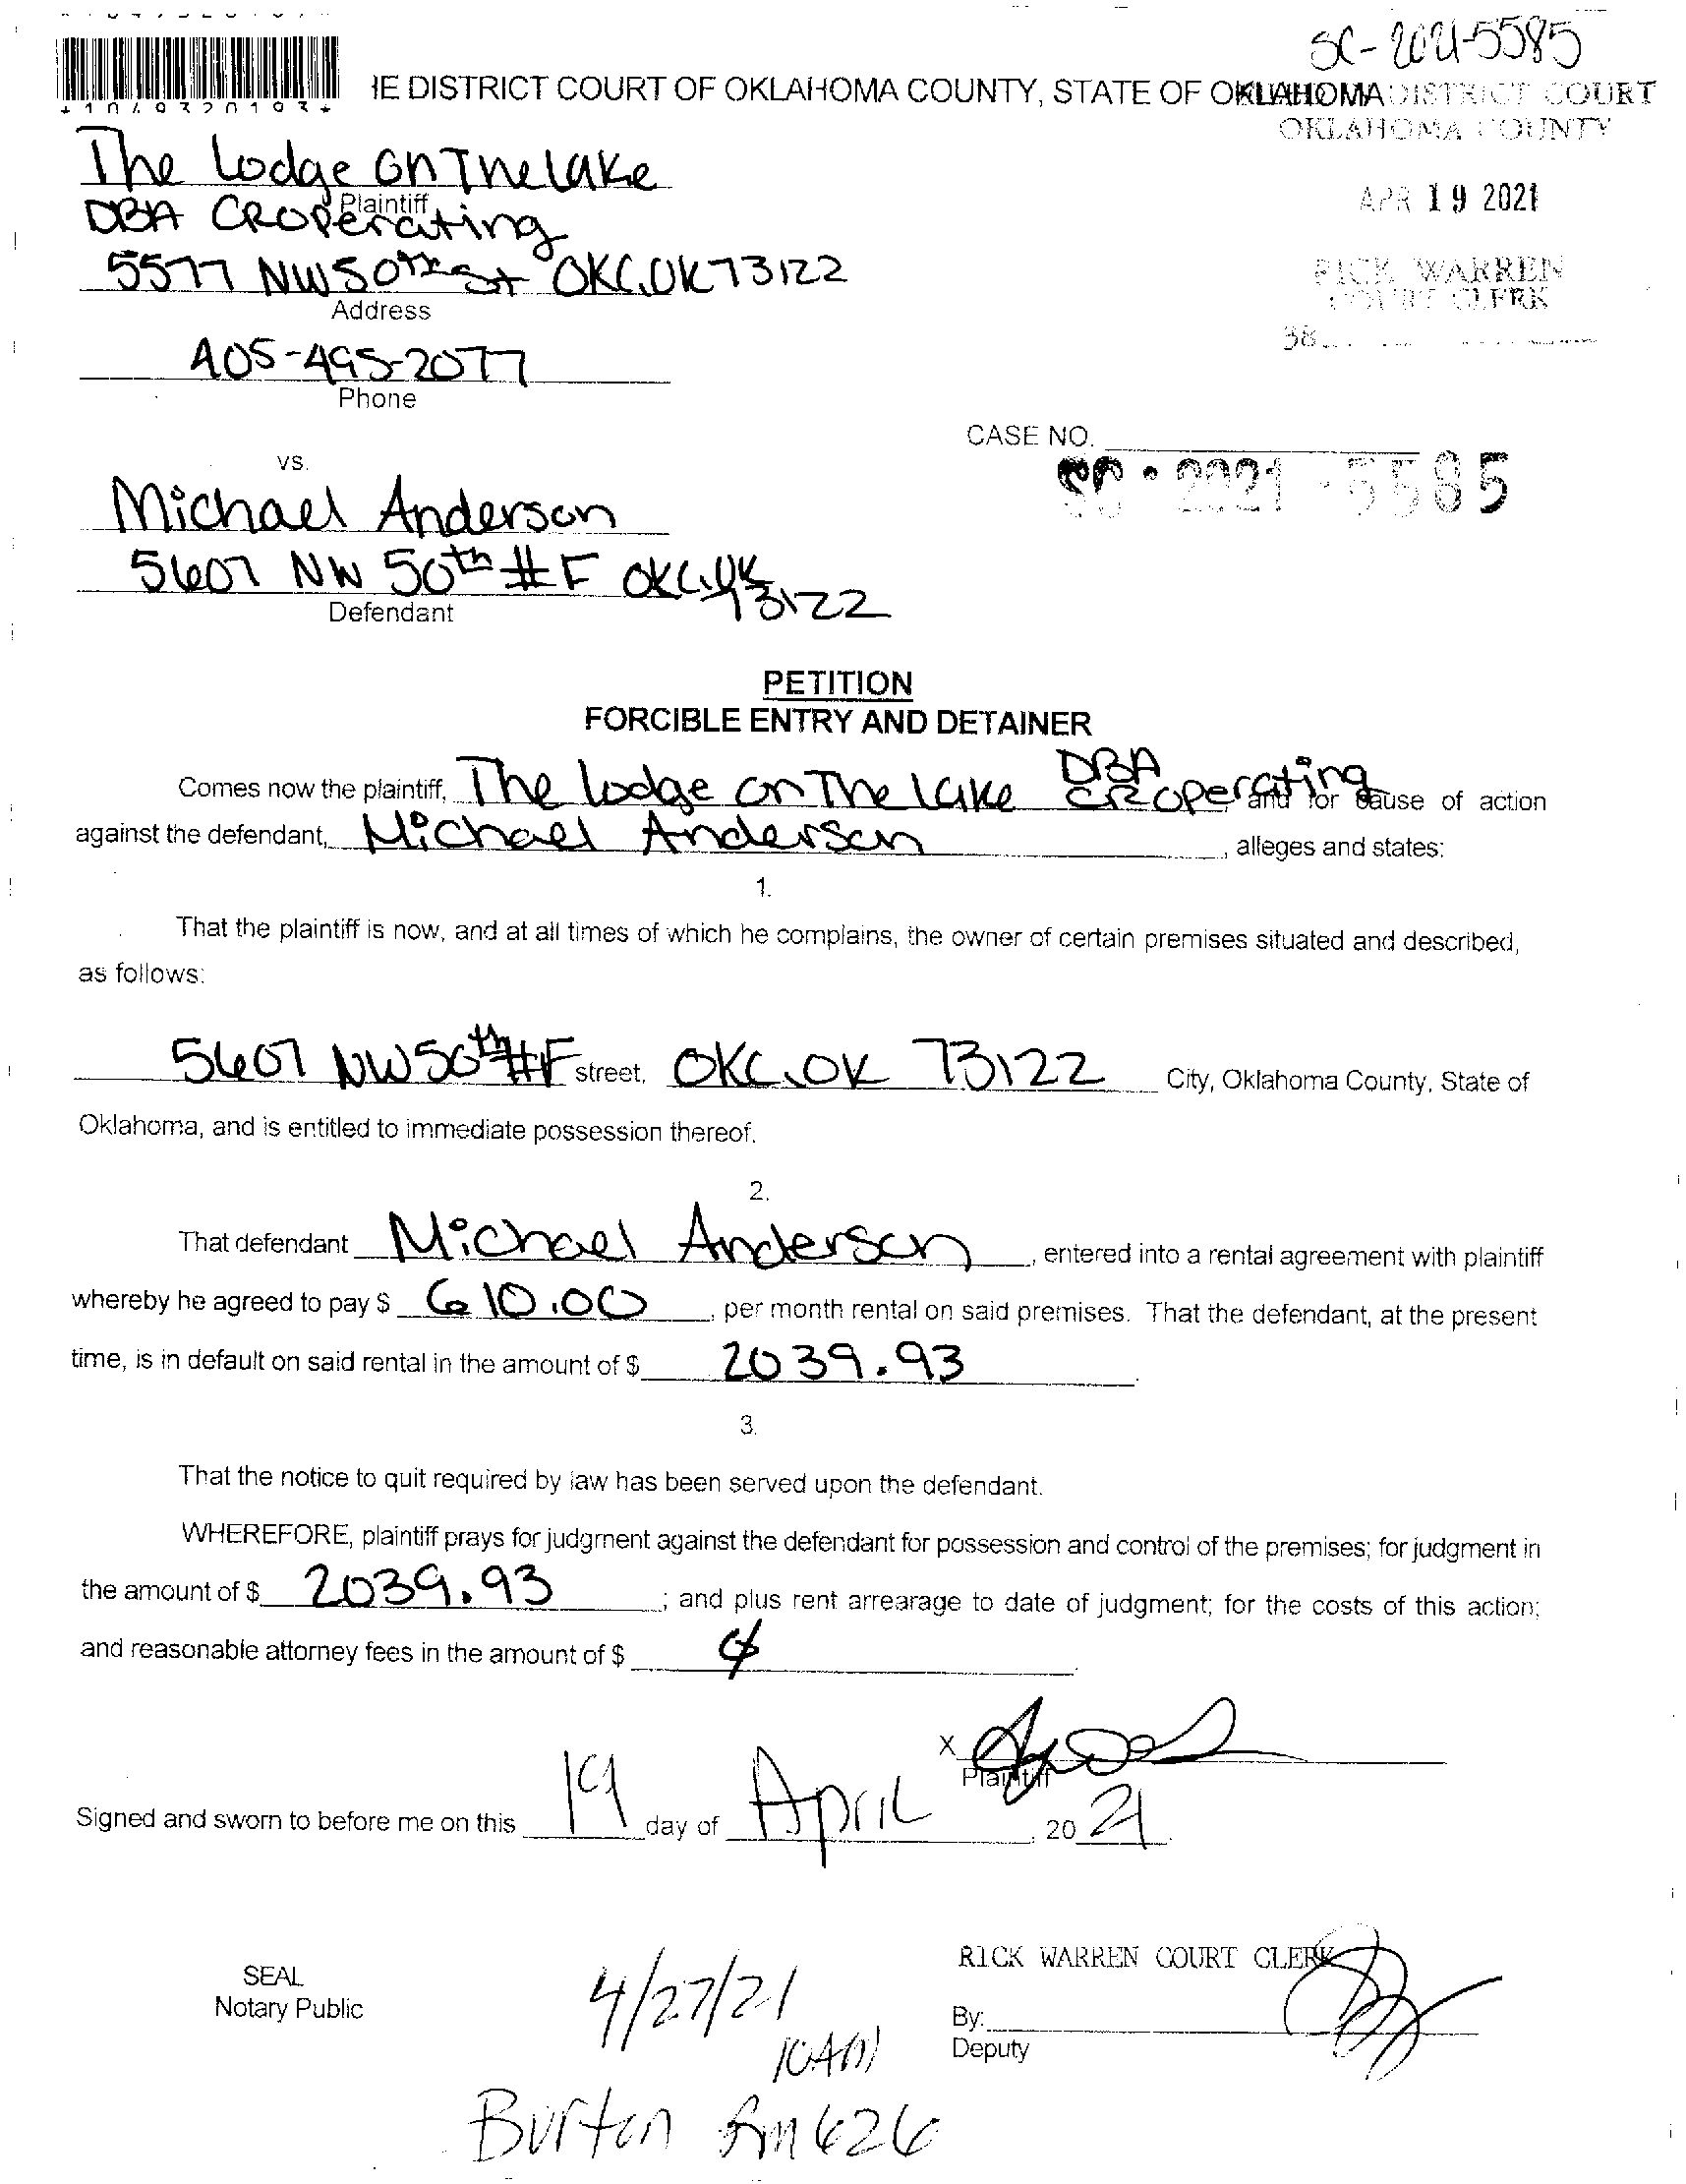 SC-2021-5585
IE DISTRICT COURT OF OKLAHOMA COUNTY, STATE OF OKLAHOMA DISTRICT COURT
OKLAHOMA COUNTY
The Lodge On The Lake
Plaintiff
DBA CROperating
APR 19 2021
5577 NW 50th St OKC, OK 73122
Address
RICK WARREN
COURT CLERK
38
405-495-2077
Phone
CASE NO.
SC - 2021 - 5585
vs.
Michael Anderson
5607 NW 50th #F OKC, OK 73122
Defendant
PETITION
FORCIBLE ENTRY AND DETAINER
Comes now the plaintiff, The Lodge on The Lake DBA CROperating and for cause of action
against the defendant, Michael Anderson, alleges and states:
1.
That the plaintiff is now, and at all times of which he complains, the owner of certain premises situated and described,
as follows:
5607 NW 50th #F street, OKC, OK 73122 City, Oklahoma County, State of
Oklahoma, and is entitled to immediate possession thereof.
2.
That defendant Michael Anderson, entered into a rental agreement with plaintiff
whereby he agreed to pay $ 610.00, per month rental on said premises. That the defendant, at the present
time, is in default on said rental in the amount of $ 2039.93.
3.
That the notice to quit required by law has been served upon the defendant.
WHEREFORE, plaintiff prays for judgment against the defendant for possession and control of the premises; for judgment in
the amount of $ 2039.93; and plus rent arrearage to date of judgment; for the costs of this action;
and reasonable attorney fees in the amount of $
X
Plaintiff
Signed and sworn to before me on this 19 day of April, 2021.
SEAL
Notary Public
RICK WARREN COURT CLERK
By:
Deputy
4/27/21
10AM
Burton Rm 626